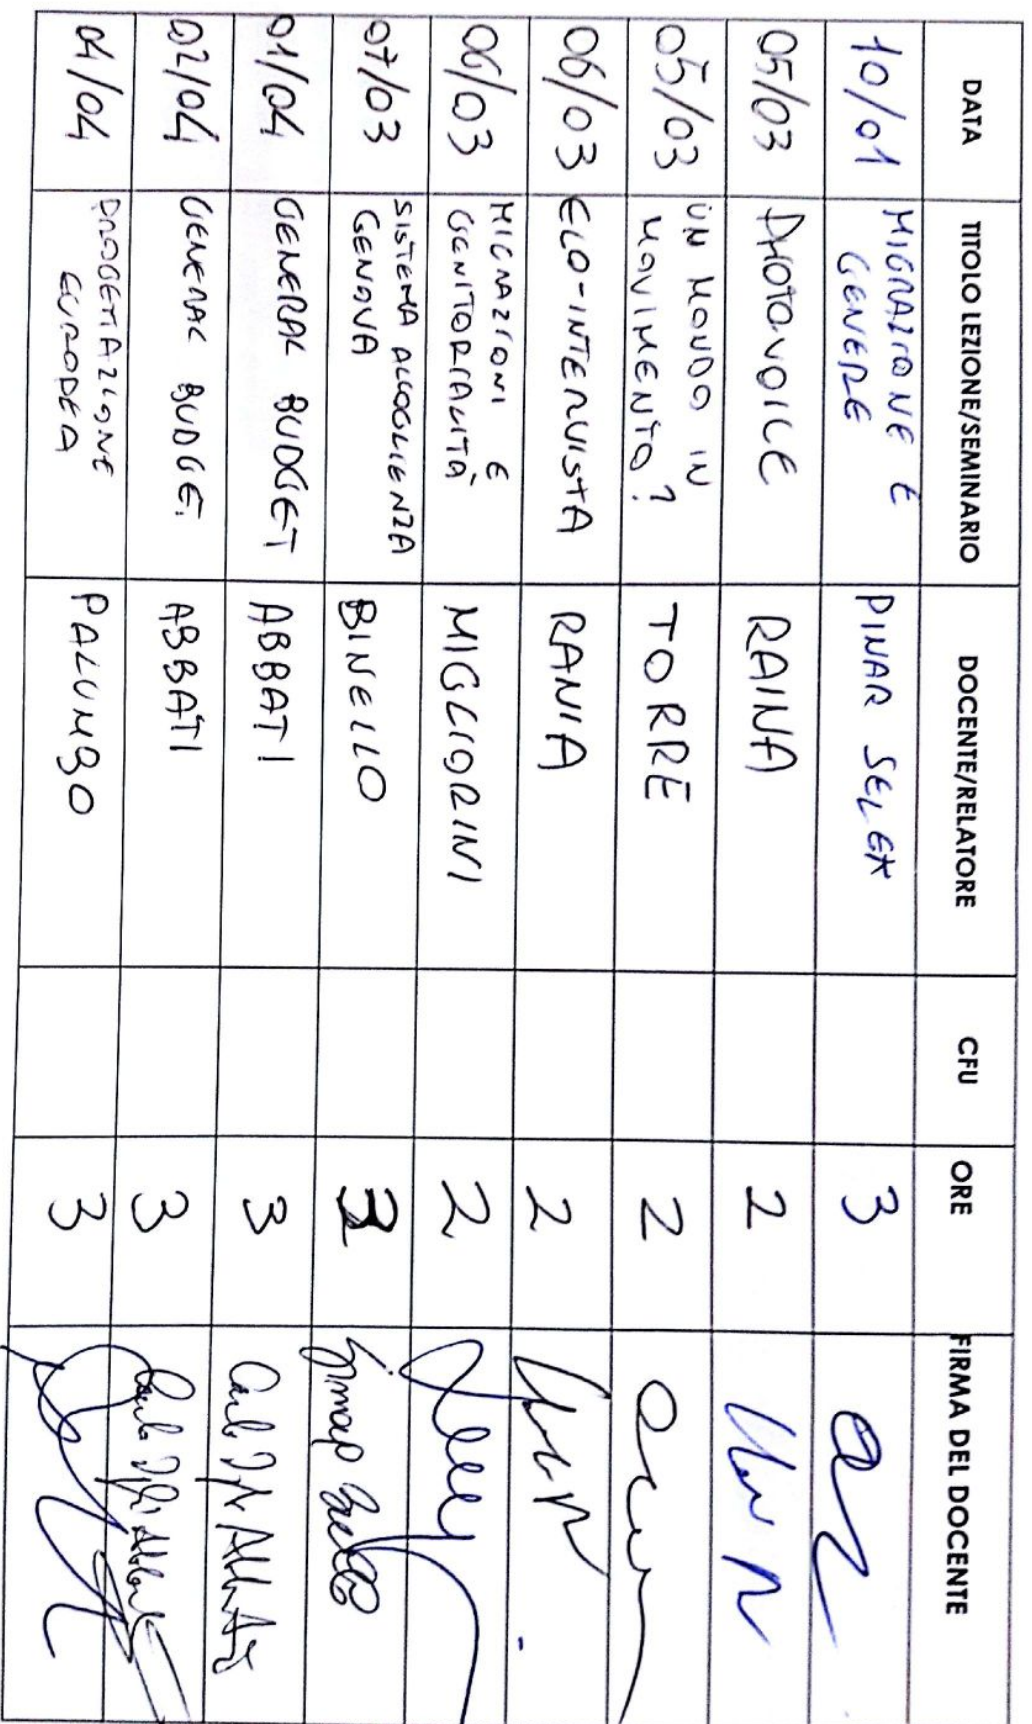 DATA TITOLO LEZIONE/SEMINARIO DOCENTE/RELATORE CFU ORE FIRMA DEL DOCENTE
10/01 MIGRAZIONE E GENERE PINAR SELEK 3
05/03 PHOTOVOICE RAINA 2
05/03 UN MONDO IN MOVIMENTO? TORRE 2
06/03 ECO-INTERVISTA RANIA 2
06/03 MIGRAZIONI E GENITORIALITÀ MIGLIORINI 2
07/03 SISTEMA ACCOGLIENZA GENOVA BINELLO
01/04 GENERAL BUDGET ABBATI 3
02/04 GENERAL BUDGE. ABBATI 3
04/04 PROGETTAZIONE EUROPEA PALUMBO 3